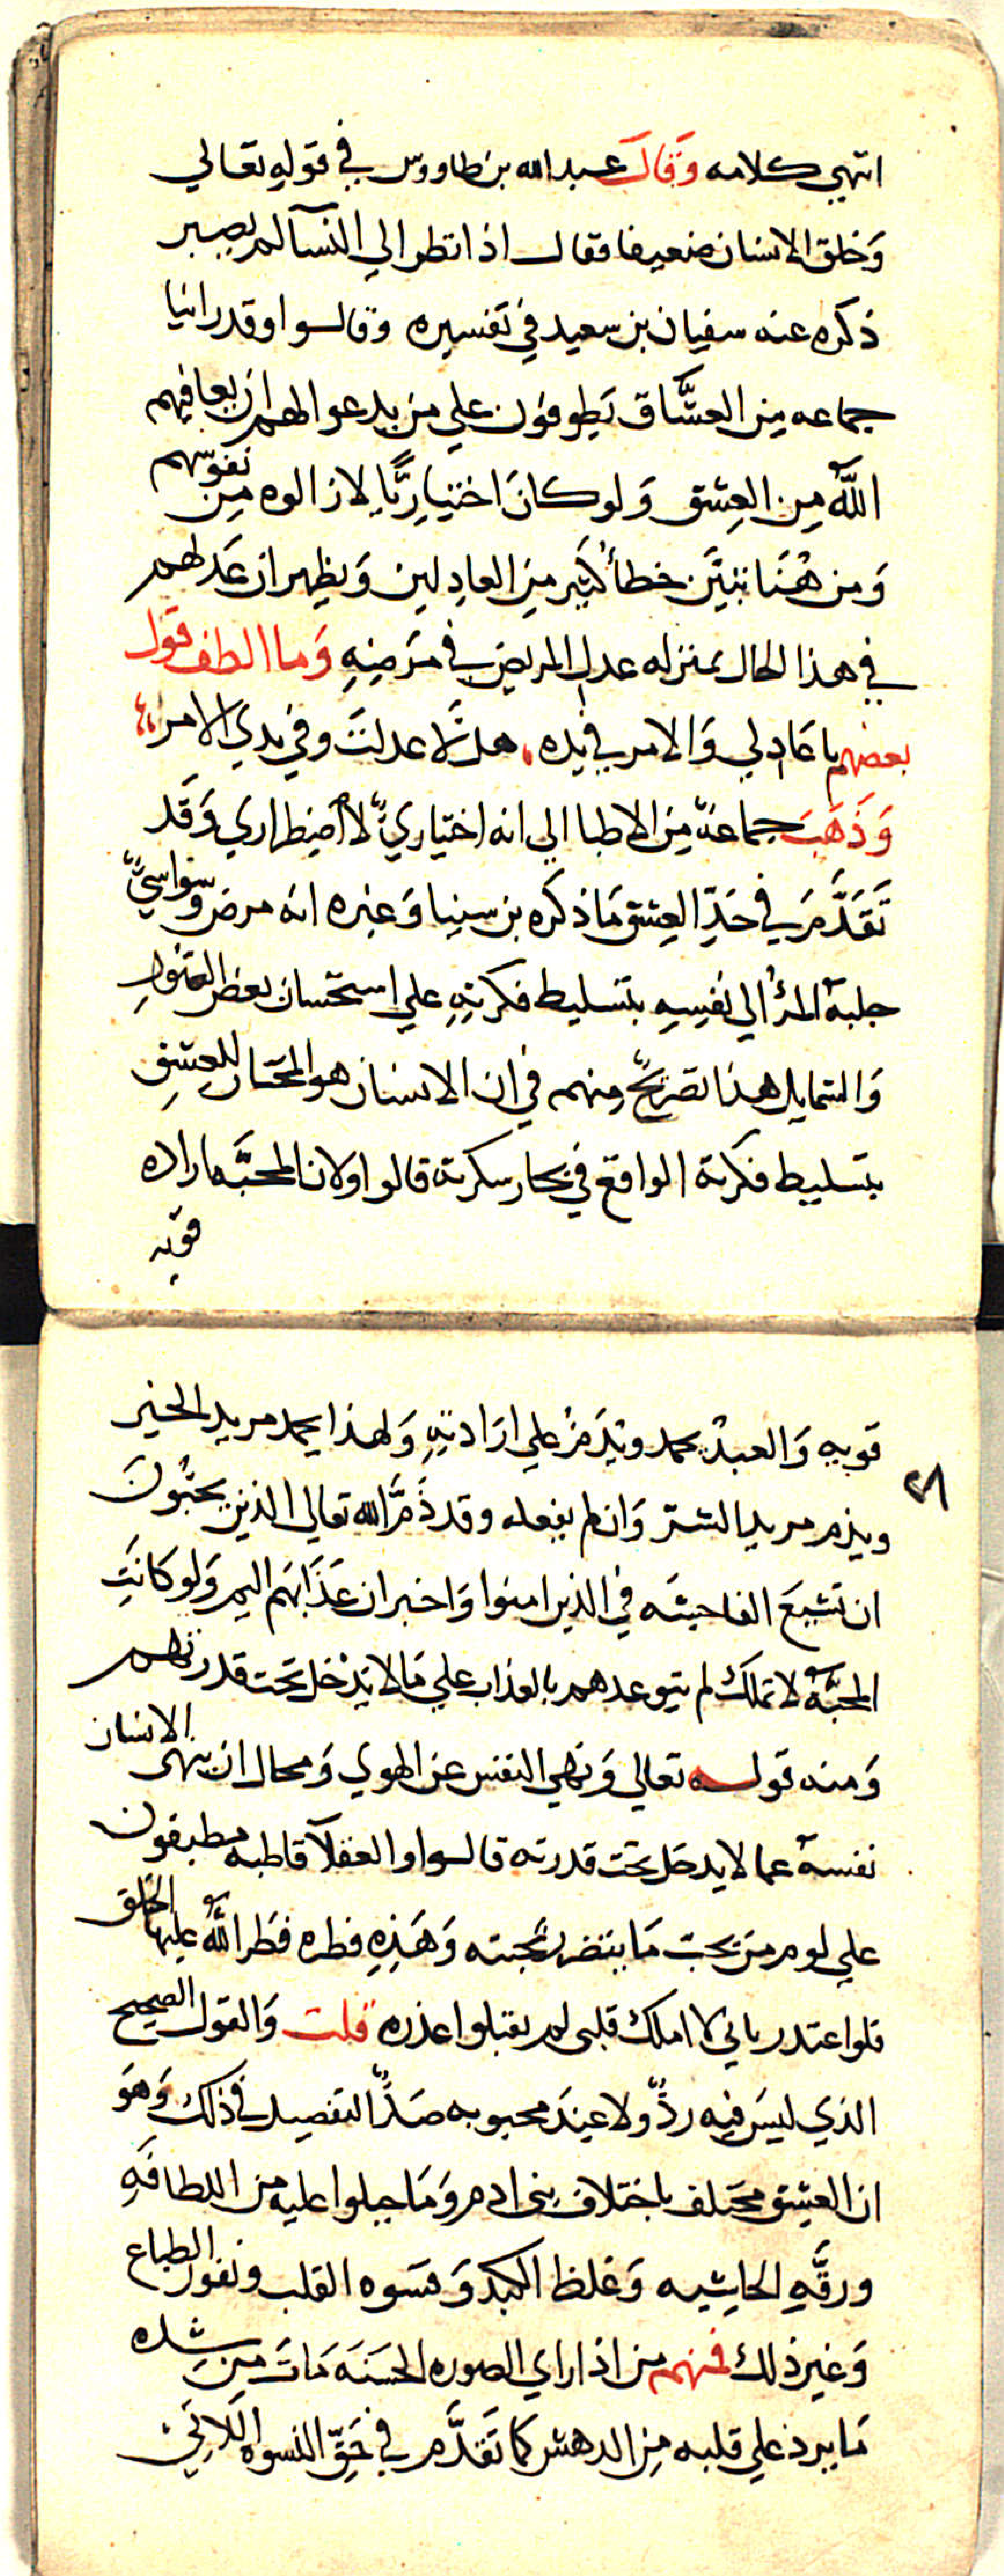 انتهي كلامه وَقَالَ عبد الله بن طاووس في قوله تعالي
وَخلق الانسان ضعيفا فقال اذا نظر الي النسآ لم يصبر
ذكره عنه سفيان بن سعيد في تفسيره وقالوا وقد راينا
جماعه مِن العشَّاق يَطوفون علي من يدعوا لهم ان يعافيهم
اللَّه مِن العِشق وَلو كانَ اختيارِيًّا لازالوه مِن نفوسهم
وَمن هُنَا تبيَّن خطأ كثير مِن العاذِلين وَيظهر ان عَذلهم
في هذا الحال بمنزله عذل المريض في مَرَضِهِ وَما الطف قول
بعضهم يا عَاذلي وَالامر في يده هلَّا عذلتَ وفي يدي الامر
وَذَهَبَ جماعة مِن الاطبا الي انه اختياريٌّ لا اضطراري وَقَد
تَقَدَّمَ في حَدِّ العِشق مَا ذكره بن سينا وَغيره انه مرض وسواسيٌّ
جلبهُ المرُْ الي نفسِهِ بتسليط فكرتِهِ علي استحسان بعض الصوَرِ
وَالشمايل هذا تصريحٌ منهم في ان الانسان هو المختار للعِشقِ
بتسليط فكرته الواقع في بحار سكرته قالوا ولان المحبَّه اراده
قويه
قويه وَالعبدُ يحمد ويُذَمُّ علي ارَادتهِ وَلهذا يحمد مريد الخير
ويذم مريد الشر وَان لم يفعله وقد ذَمَّ الله تعالي الذين يحبُّونَ
ان تشيعَ الفاحِشه في الذين امنوا وَاخبر ان عَذَابَهم اليم وَلو كانَتِ
المحبَّة لا تملك لم يتوعدهم بالعذاب علي مَا لا يَدْخل تحت قدرتهم
وَمنه قوله تعالي وَنهي النفس عن الهوي وَمحال ان ينهي الانسان
نفسهُ عما لا يدخل تحت قدرته قالوا والعقلآ قاطبه مطبقون
علي لوم من يحب مَا يتضرر بمحبته وَهَذِهِ فطره فَطَر اللَّهُ عليها الخلق
فلو اعتذر باني لا املك قلبي لم يقبلوا عذره قلت وَالقول الصحيح
الذي ليسَ فيه ردٌّ ولا عندَ محبوبه صَدٌّ التفصيل في ذلك وَهوَ
ان العِشق مختلف باختلاف بني ادم وَمَا جبلوا عليه مِن اللطافَهِ
ورقَّهِ الحاشِيه وَغلظ الكبد وَقسوه القلب ونفور الطباع
وَغير ذلك فمنهم من اذا راي الصوره الحسَنَه مَاتَ مِن شِده
مَا يرد علي قلبه مِن الدهش كما تقَدَّم في حَقِّ النسوه اللَّاتي